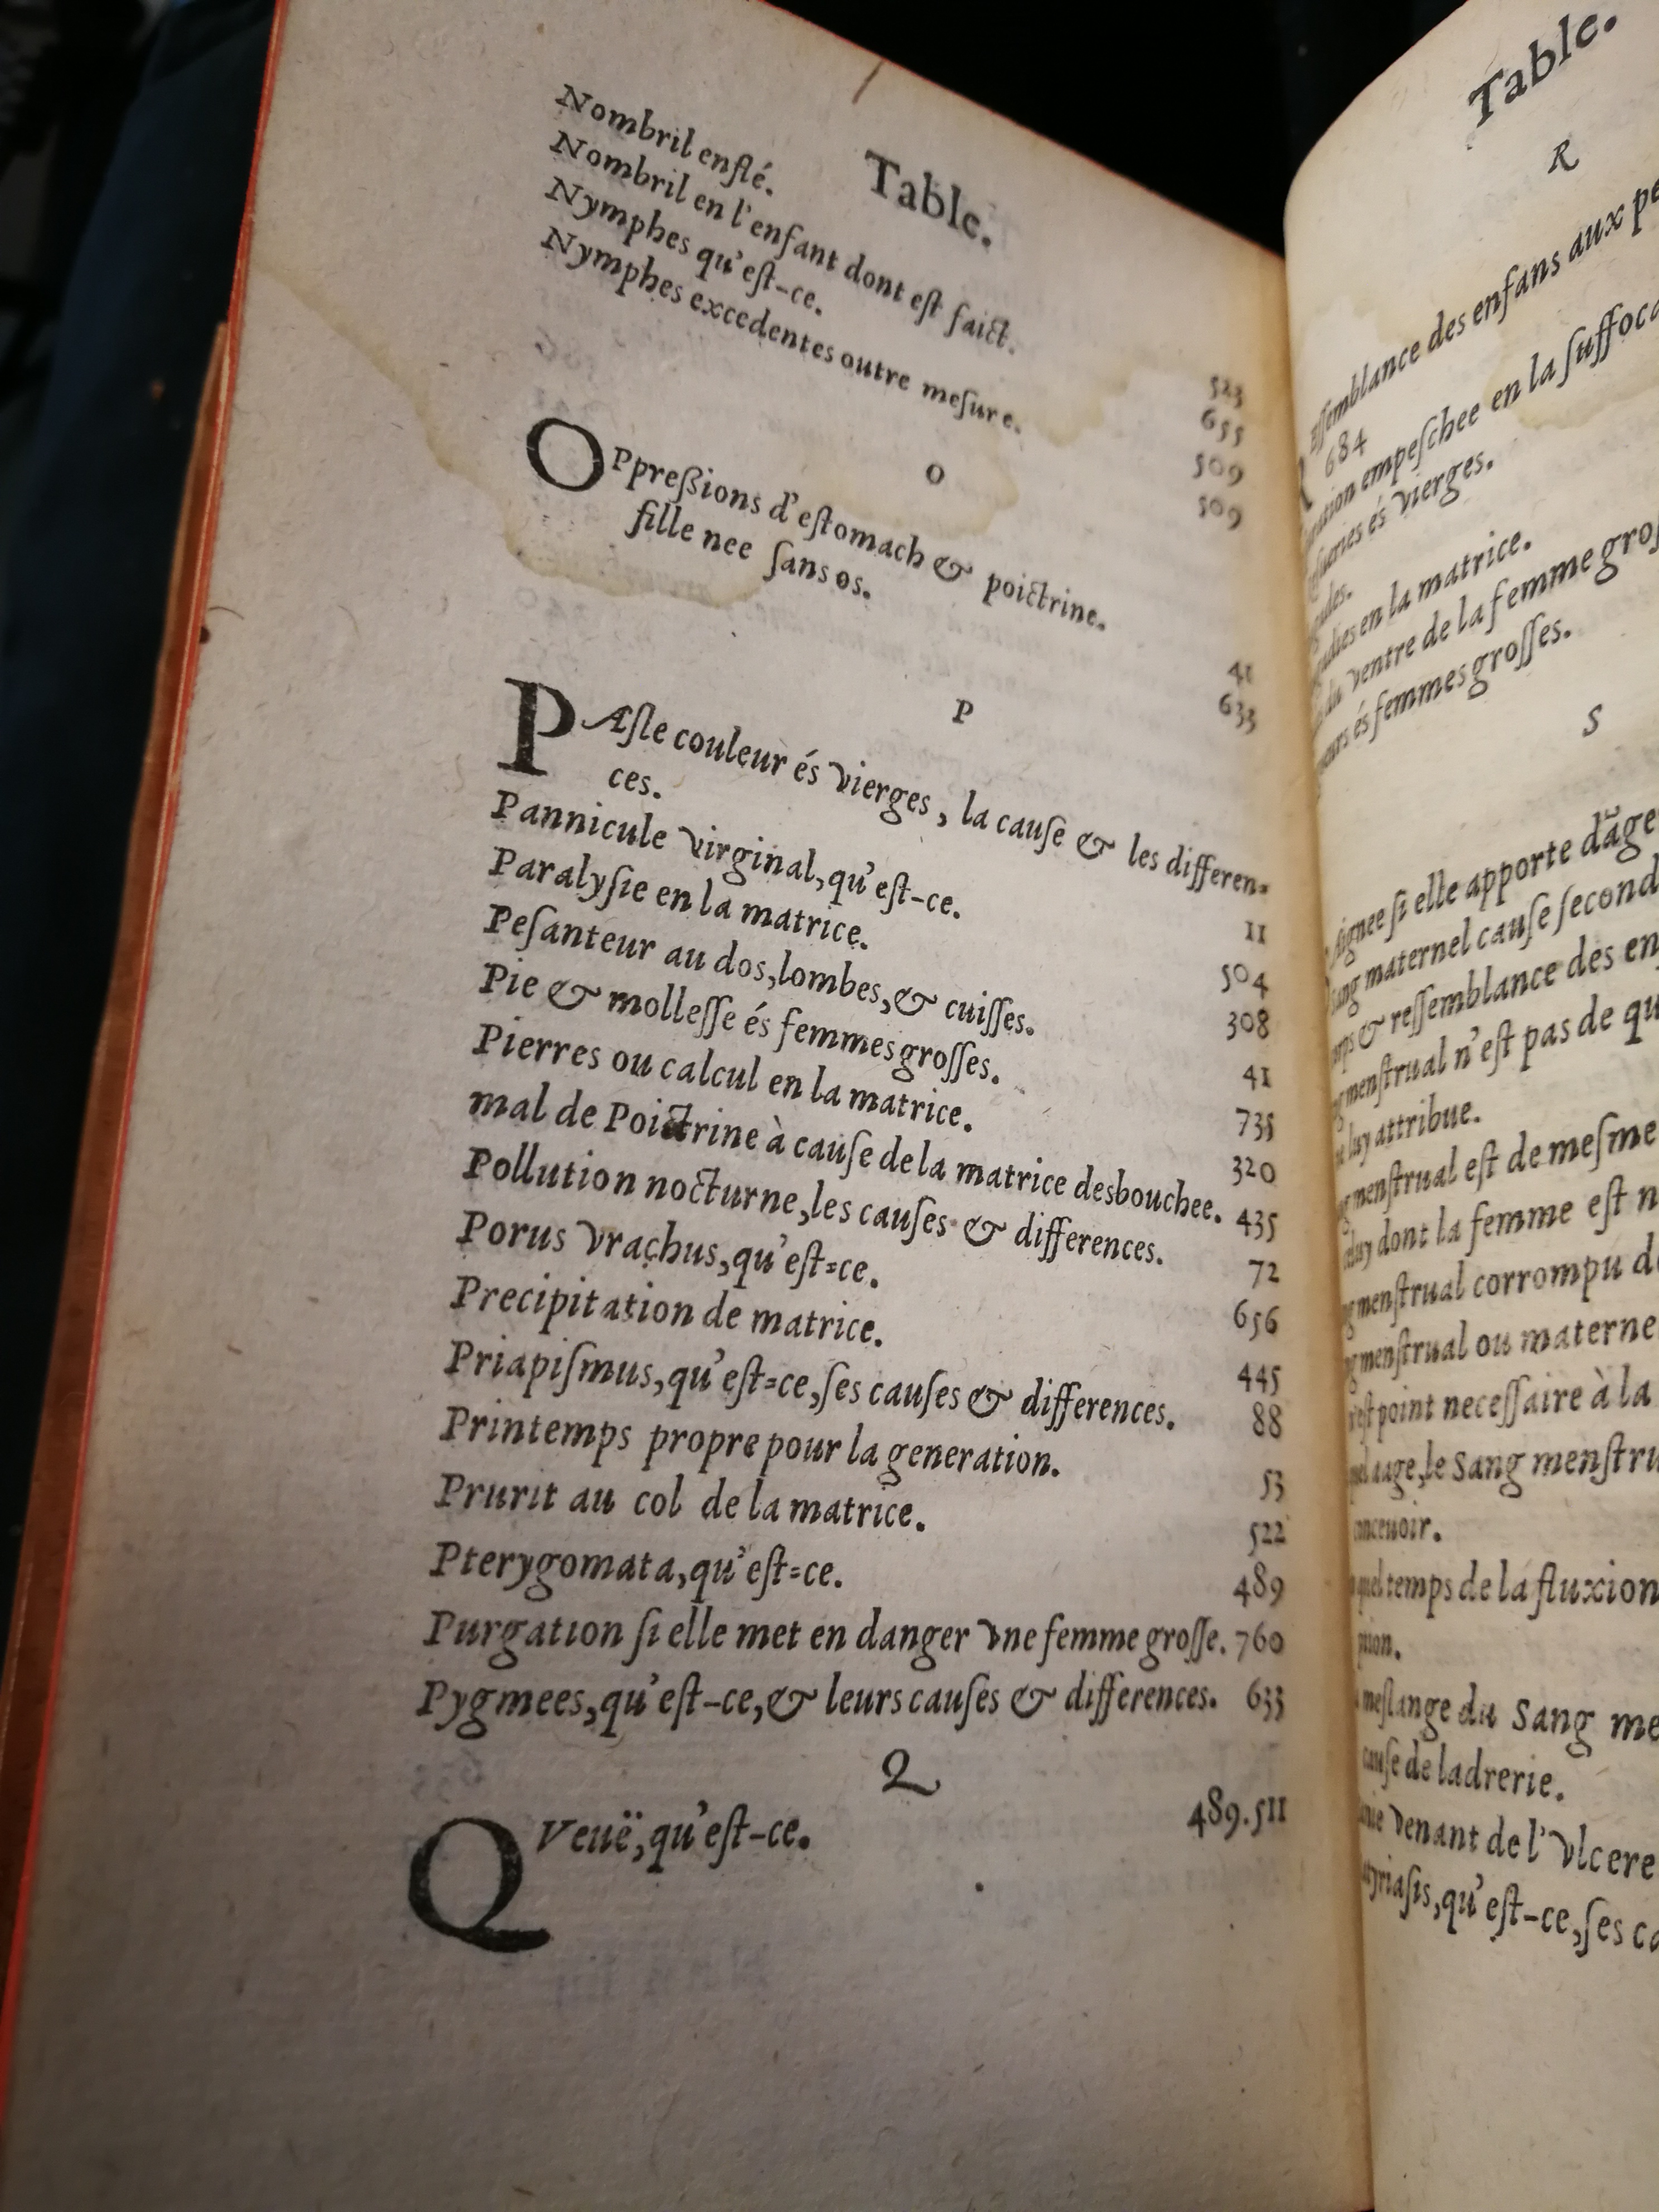 Table.
Nombril enflé. 523
Nombril en l'enfant dont est faict. 655
Nymphes qu'eſt-ce. 509
Nymphes excedentes outre meſure. 509
O
OPpreßions d'eſtomach & poictrine. 41
fille nee ſans os. 633
P
PAſle couleur és vierges, la cauſe & les differen-
ces. 11
Pannicule virginal, qu'eſt-ce. 504
Paralyſie en la matrice. 308
Peſanteur au dos, lombes, & cuiſſes. 41
Pie & molleſſe és femmes groſſes. 735
Pierres ou calcul en la matrice. 320
mal de Poictrine à cauſe de la matrice desbouchee. 435
Pollution nocturne, les cauſes & differences. 72
Porus vrachus, qu'eſt-ce. 656
Precipitation de matrice. 445
Priapiſmus, qu'eſt-ce, ſes cauſes & differences. 88
Printemps propre pour la generation. 53
Prurit au col de la matrice. 522
Pterygomata, qu'eſt-ce. 489
Purgation ſi elle met en danger vne femme groſſe. 760
Pygmees, qu'eſt-ce, & leurs cauſes & differences. 633
Q
QVeuë, qu'eſt-ce. 489.511
Table.
R
des enfans aux
684
empeſchee en la
és vierges.
en la matrice.
ventre de la femme
és femmes groſſes.
S
ſi elle apporte dāge
maternel cauſe ſecond
& reſſemblance des
menſtrual n'eſt pas de
luy attribue.
menſtrual eſt de meſme
dont la femme eſt
menſtrual corrompu
menſtrual ou
point neceſſaire à la
le Sang
temps de la fluxion
du Sang
de ladrerie.
venant de l'vlcere
qu'eſt-ce, ſes